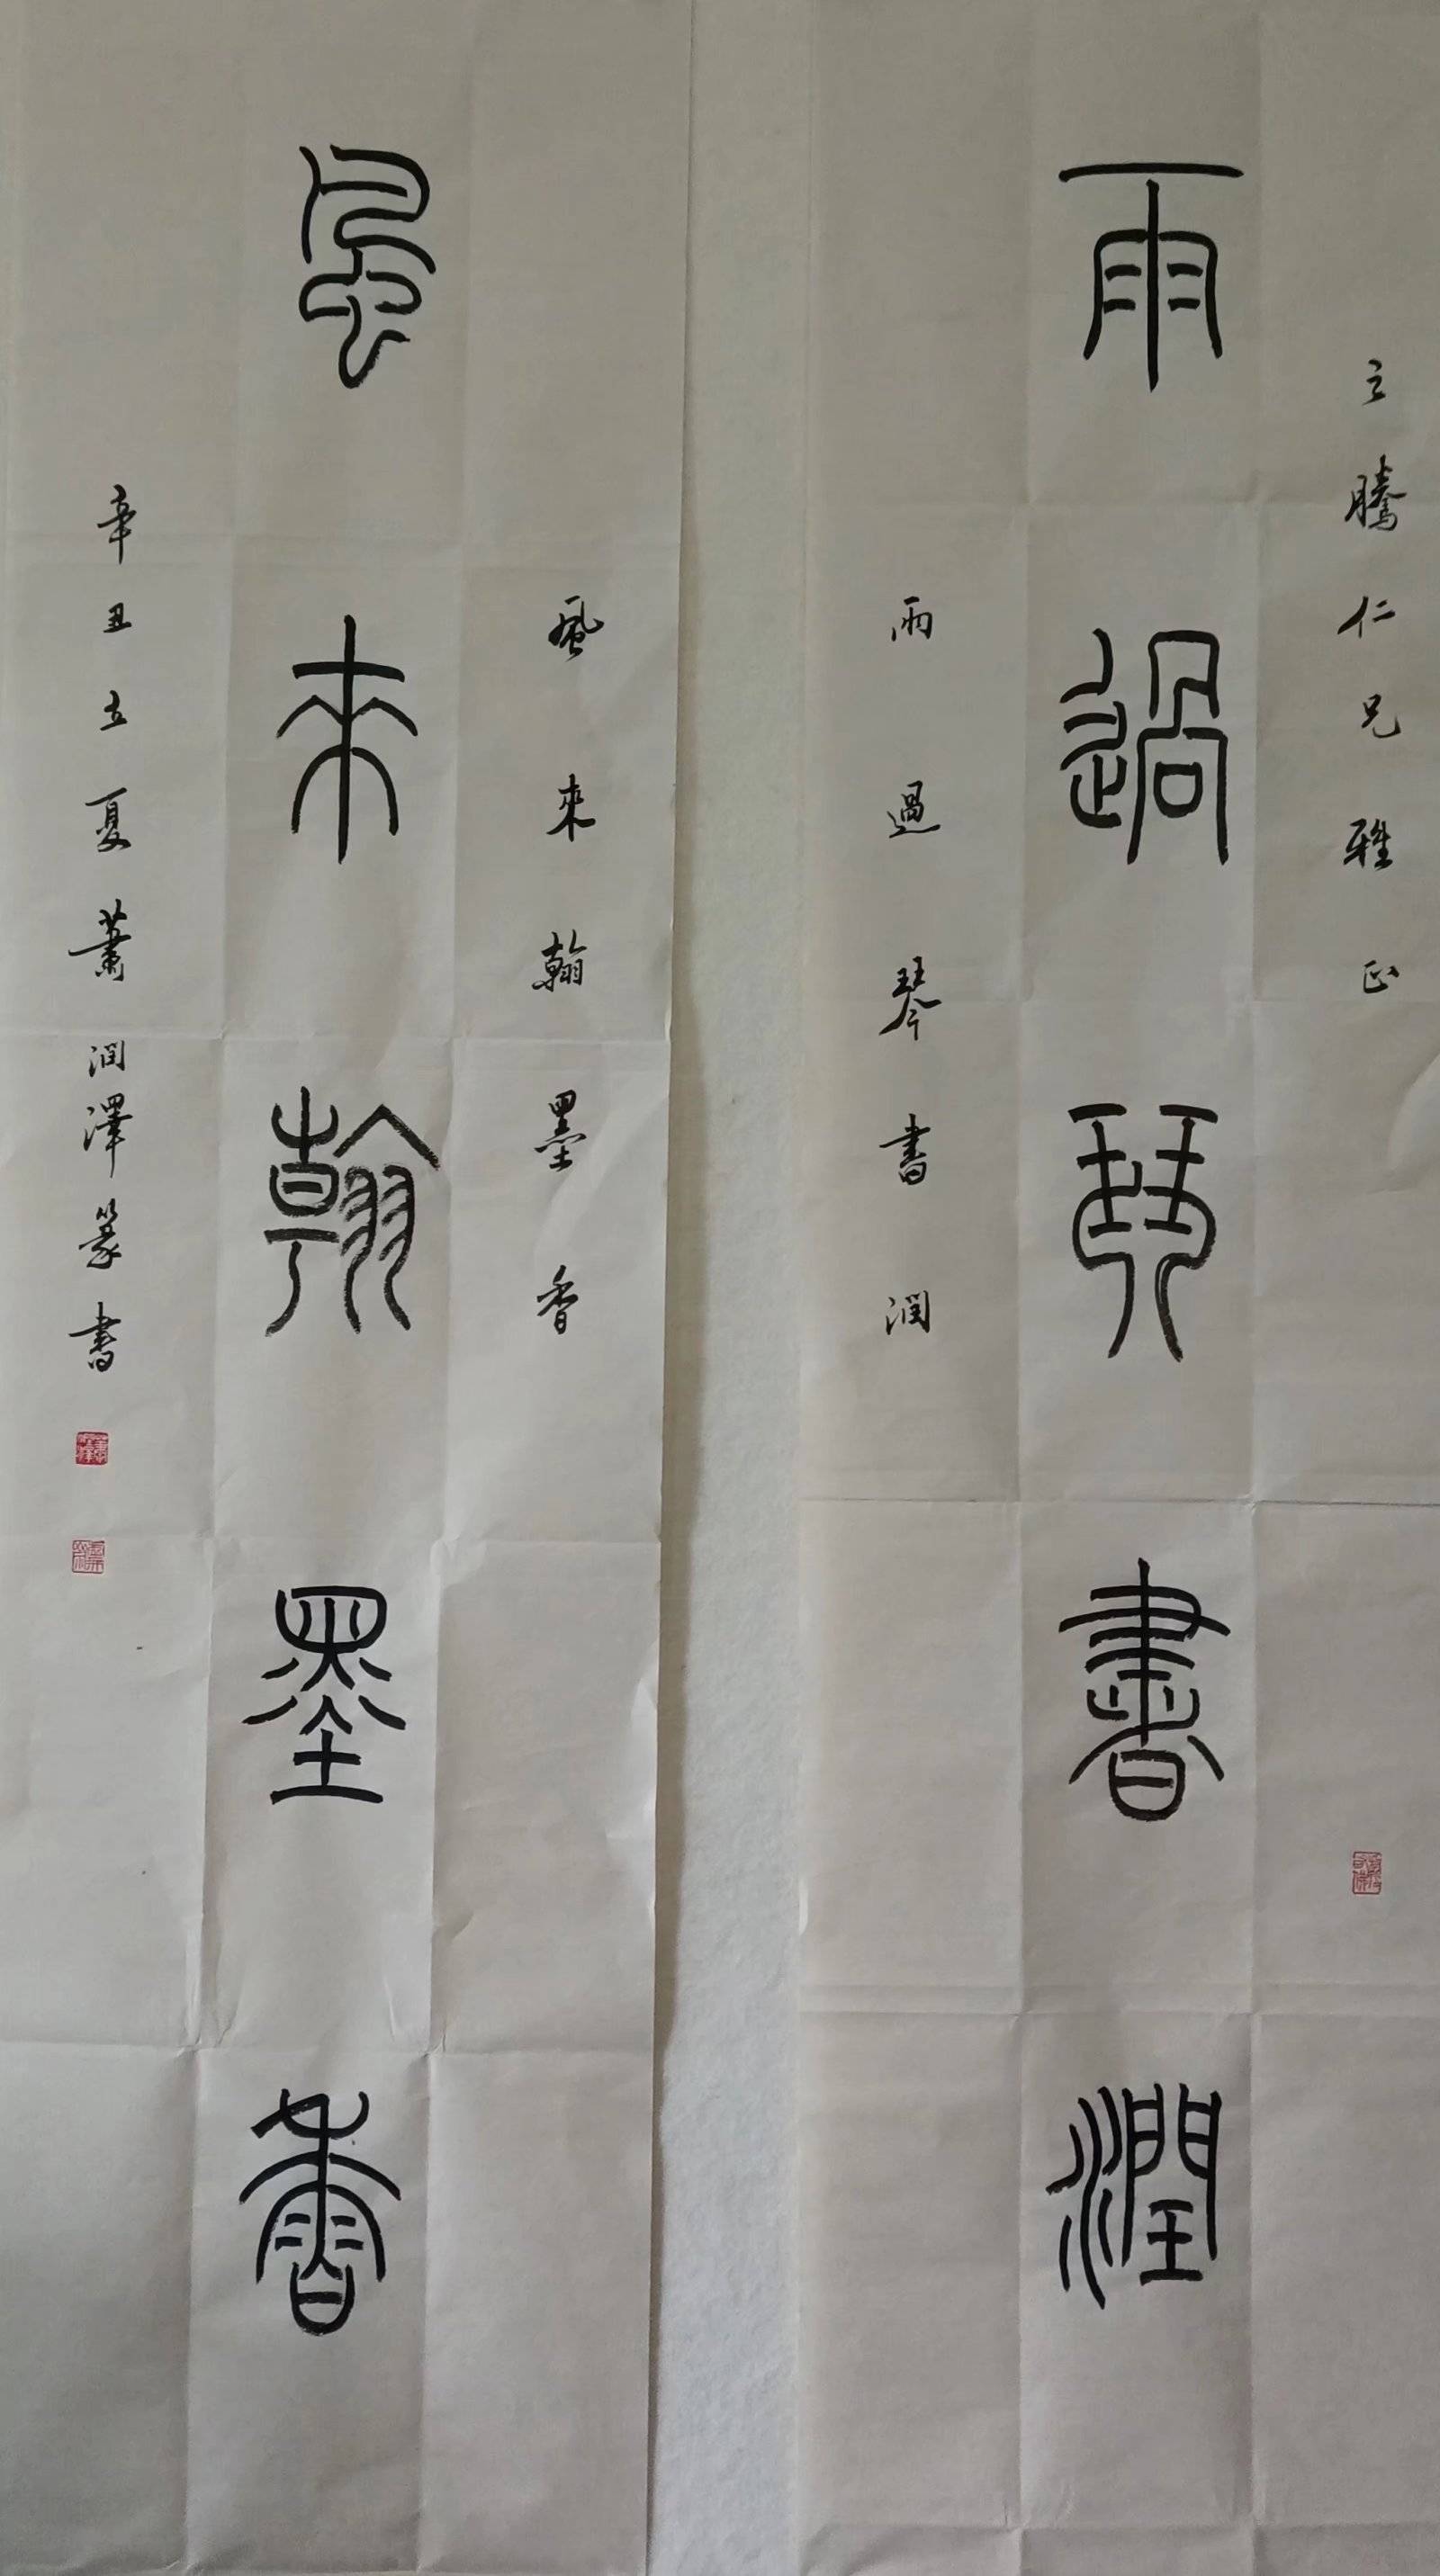 之騰仁兄雅正
雨過琴書潤
雨過琴書潤
風來翰墨香
風來翰墨香
辛丑立夏蕭潤澤篆書